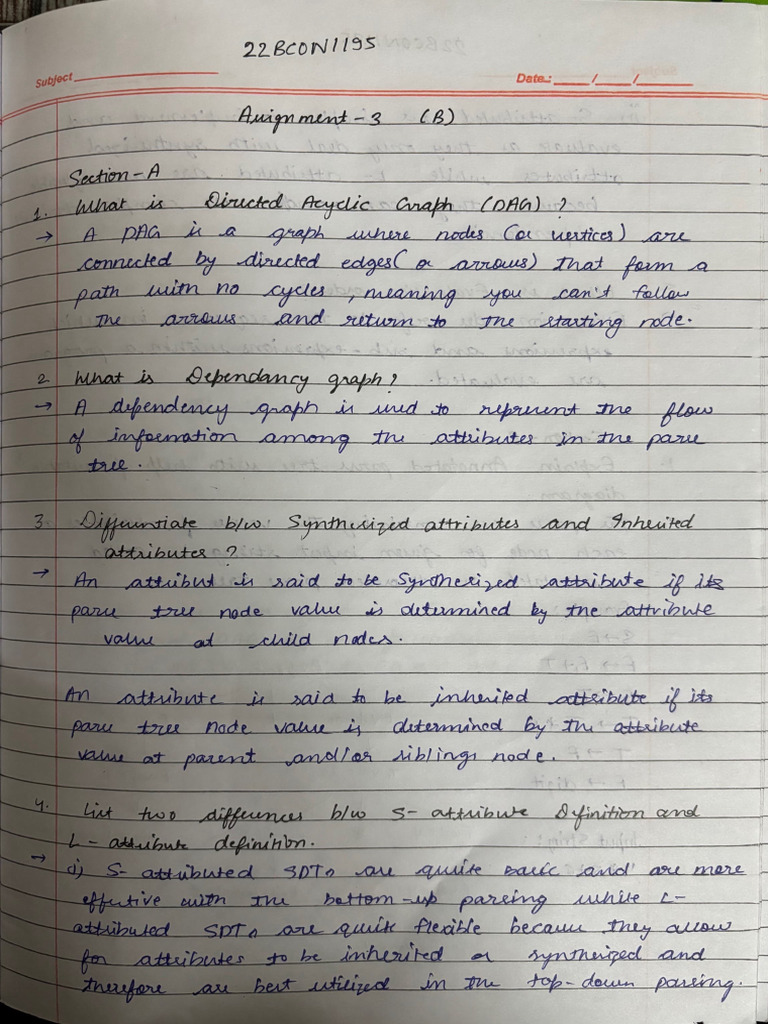 22BCON1195
Subject
Date.: / /
Assignment-3 (B)
Section-A
1. What is Directed Acyclic Graph (DAG) ?
→ A DAG is a graph where nodes (or vertices) are
connected by directed edges( or arrows) that form a
path with no cycles, meaning you can't follow
the arrows and return to the starting node.
2. What is Dependancy graph?
→ A dependency graph is used to represent the flow
of information among the attributes in the parse
tree.
3. Differentiate b/w Synthesized attributes and Inherited
attributes ?
→ An attribut is said to be Synthesized attribute if its
parse tree node value is determined by the attribute
value at child nodes.
An attribute is said to be inherited attribute if its
parse tree node value is determined by the attribute
value at parent and/or siblings node.
4. List two differences b/w S- attribute Definition and
L- attribute definition.
→ i) S- attributed SDTs are quite basic and are more
effective with the bottom-up parsing while L-
attributed SDTs are quite flexible because they allow
for attributes to be inherited or synthesized and
therefore are best utilized in the top-down parsing.